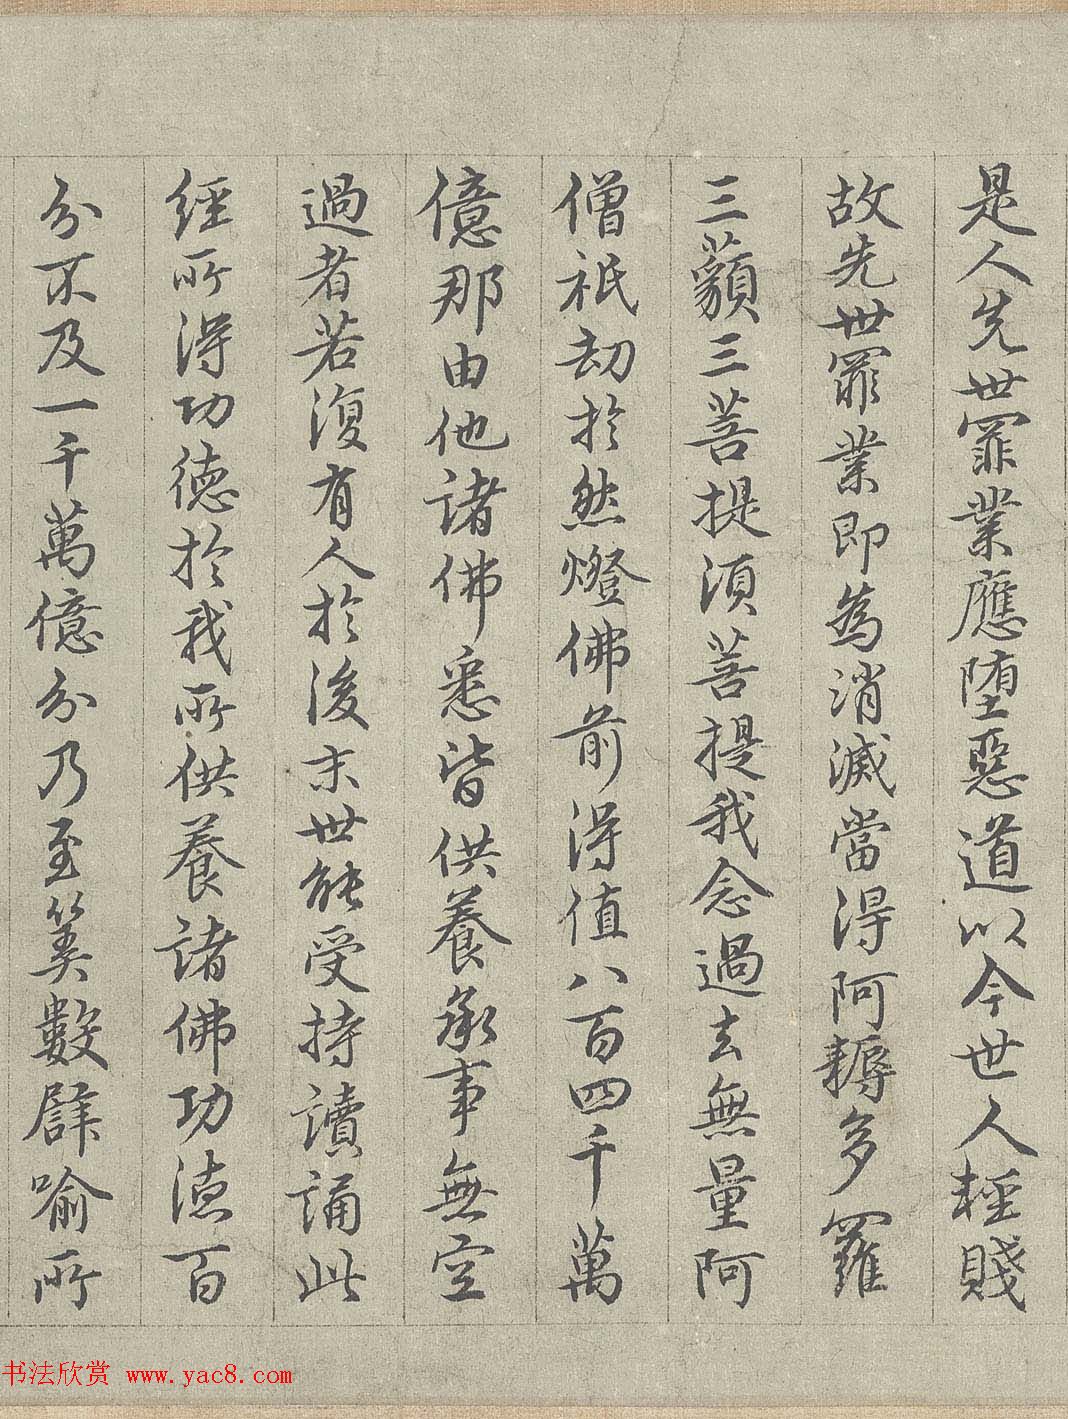 是人先世罪業應墮惡道以今世人輕賤
故先世罪業即為消滅當得阿耨多羅
三藐三菩提須菩提我念過去無量阿
僧祇劫於然燈佛前得值八百四千萬
億那由他諸佛悉皆供養承事無空
過者若復有人於後末世能受持讀誦此
經所得功德於我所供養諸佛功德百
分不及一千萬億分乃至筭數譬喻所
书法欣赏 www.yac8.com